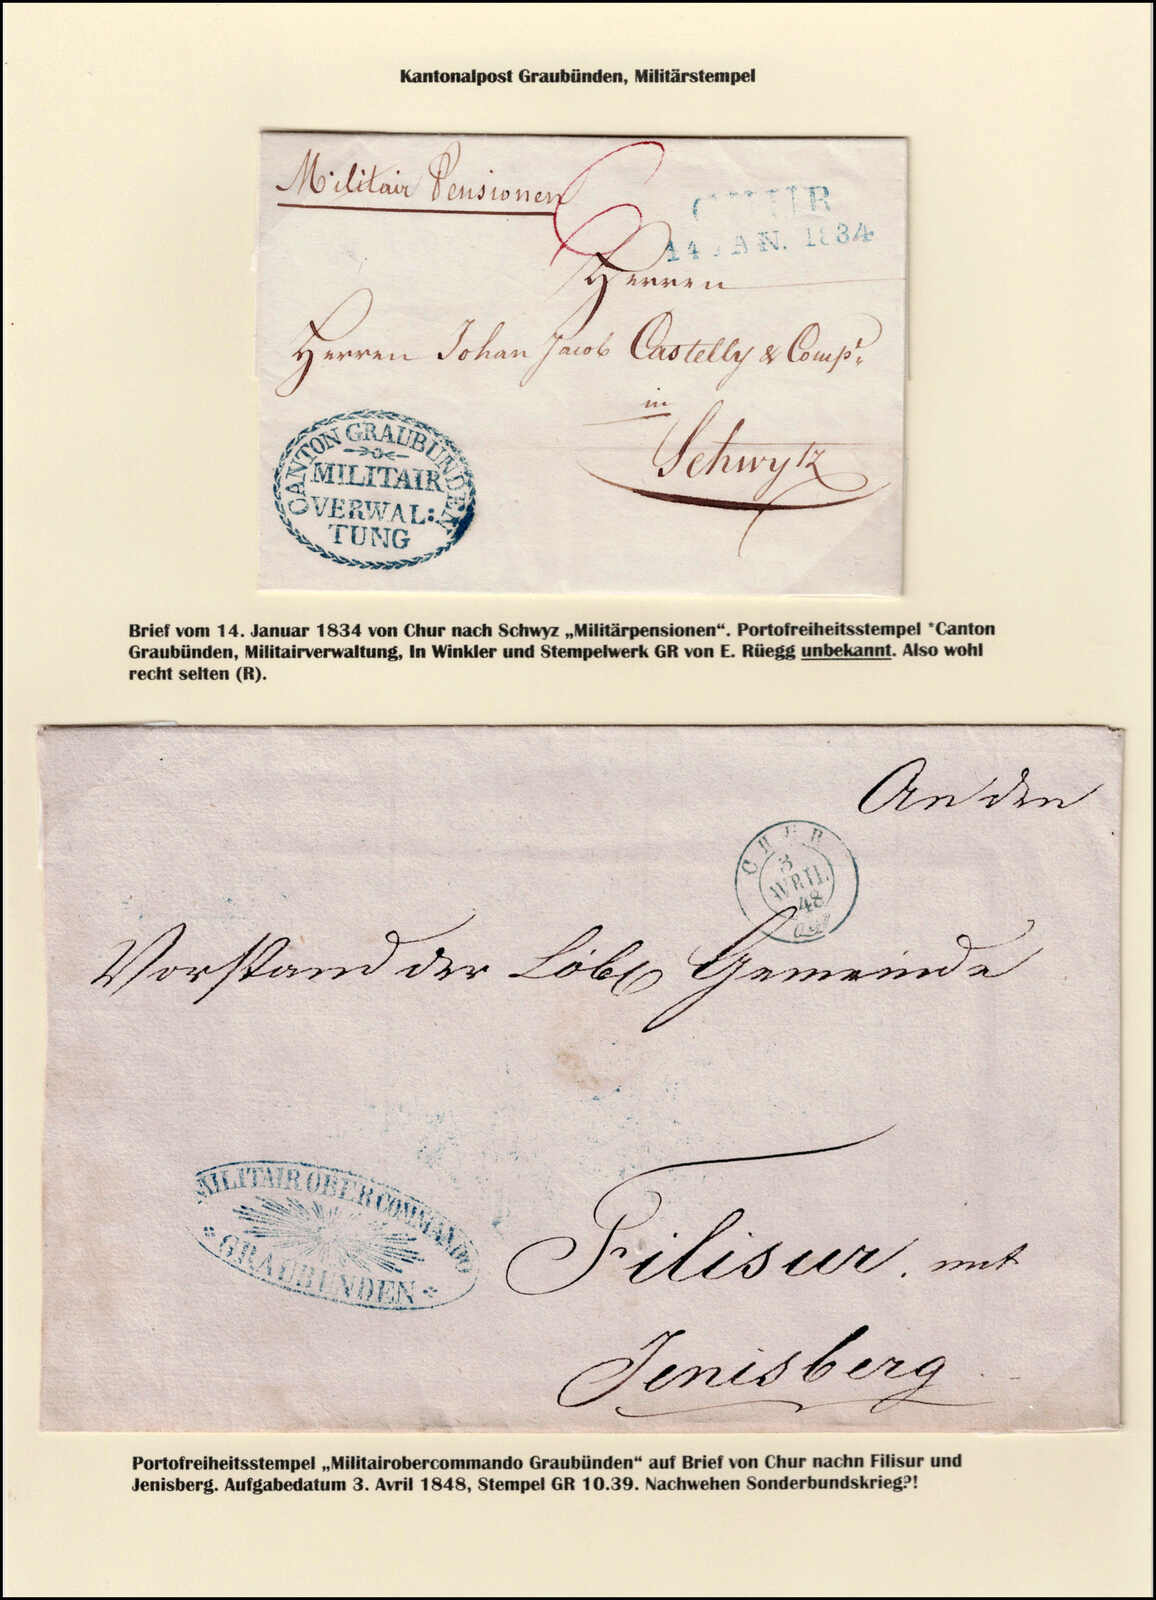 Kantonalpost Graubünden, Militärstempel
Militair Pensionen
CHUR
14 JAN. 1834
Herren
Herren Johan Jacob Castelly & Comp.
in
Schwytz
CANTON GRAUBÜNDEN
MILITAIR
VERWAL:
TUNG
Brief vom 14. Januar 1834 von Chur nach Schwyz „Militärpensionen“. Portofreiheitsstempel *Canton
Graubünden, Militairverwaltung, In Winkler und Stempelwerk GR von E. Rüegg unbekannt. Also wohl
recht selten (R).
An den
CHUR
3
AVRIL
48
Vorstand der Löbl Gemeinde
MILITAIR OBERCOMMANDO
GRAUBÜNDEN
Filisur. mit
Jenisberg
Portofreiheitsstempel „Militairobercommando Graubünden“ auf Brief von Chur nachn Filisur und
Jenisberg. Aufgabedatum 3. Avril 1848, Stempel GR 10.39. Nachwehen Sonderbundskrieg?!